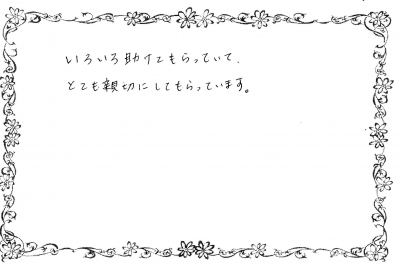 いろいろ助けてもらっていて、
とても親切にしてもらっています。